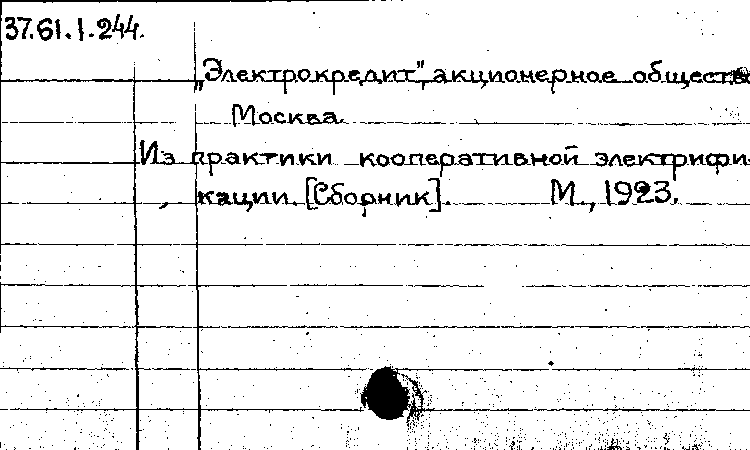 37.61.1.244.
„Электрокредит", акционерное общество
Москва.
Из практики кооперативной электрифи-
кации. [Сборник]. М., 1923.